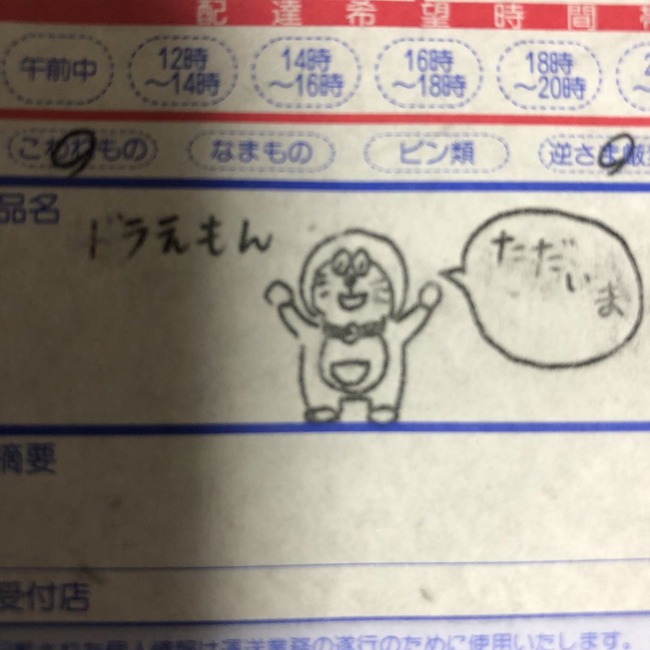 配達希望時間
午前中
12時
～14時
14時
～16時
16時
～18時
18時
～20時
こわれもの
なまもの
ビン類
逆さま厳
品名
ドラえもん
ただいま
摘要
受付店
人情報は運送業務の遂行のために使用いたします。